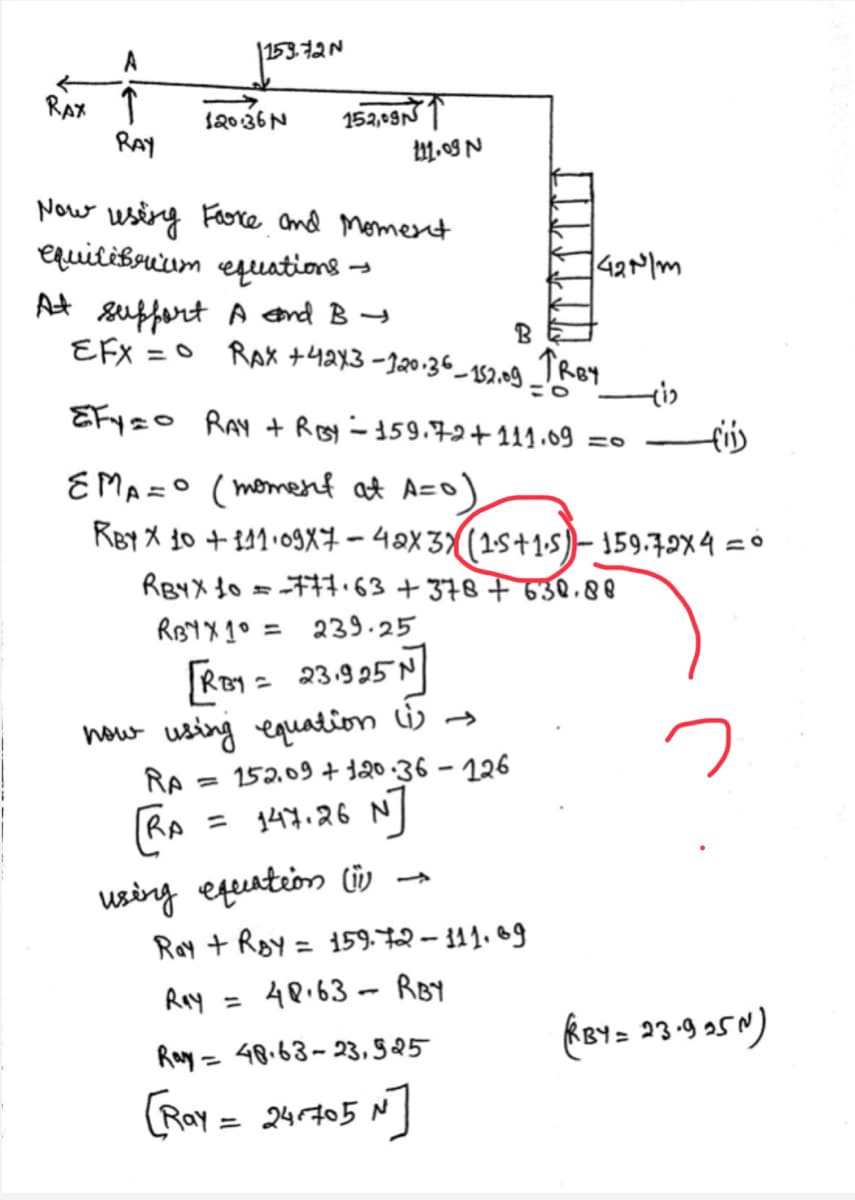 159.72N
A
RAX
RAY
120.36N
152,09N
111.09 N
Now using Force and Moment
equilibrium equations →
42N/m
At support A and B →
B
RBY
ΣFX = 0 RAX +42X3 -120.36-152.09 = 0 —(i)
ΣFy=0 RAY + RBY - 159.72 + 111.09 =0 —(ii)
ΣMA=0 (moment at A=0)
RBY X 10 + 111.09X7 - 42X3X(1.5+1.5) - 159.72X4 = 0
RBYX 10 = -777.63 + 378 + 638.88
RBYX10 = 239.25
[RBY = 23.925 N]
now using equation (i) →
RA = 152.09 + 120.36 - 126
[RA = 147.26 N]
?
using equation (ii) →
RAY + RBY = 159.72 - 111.09
RAY = 48.63 - RBY
RAY = 48.63 - 23,925
(RBY = 23.925N)
[RAY = 24.705 N]